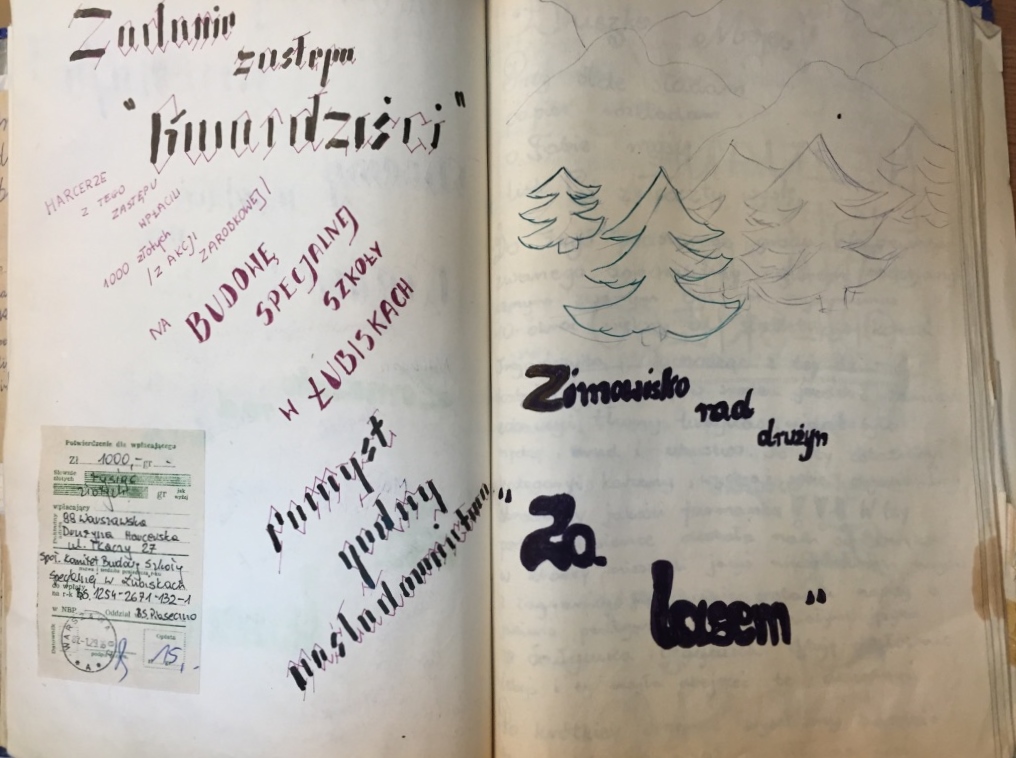 Zadanie
zastępu
"Gwardziści"
HARCERZE
Z TEGO
ZASTĘPU
WPŁACILI
1000 złotych
/Z AKCJI
ZAROBKOWEJ/
NA
BUDOWĘ
SPECJALNEJ
SZKOŁY
W ŁUBISKACH
Pomysł
godny
naśladownictwa
Potwierdzenie dla wpłacającego
Zł 1000,- gr -
Słownie
złotych tysiąc
złotych gr jak wyżej
wpłacający
88 Warszawska
Drużyna Harcerska
ul. Tkaczy 27
Społ. Komitet Budowy Szkoły
Specjalnej w Łubiskach
na r-k BS. 1254-2671-132-1
w NBP Oddział BS. Piaseczno
WARSZAWA
Opłata
15,-
Zimowisko
rad
drużyn
"Za
lasem"